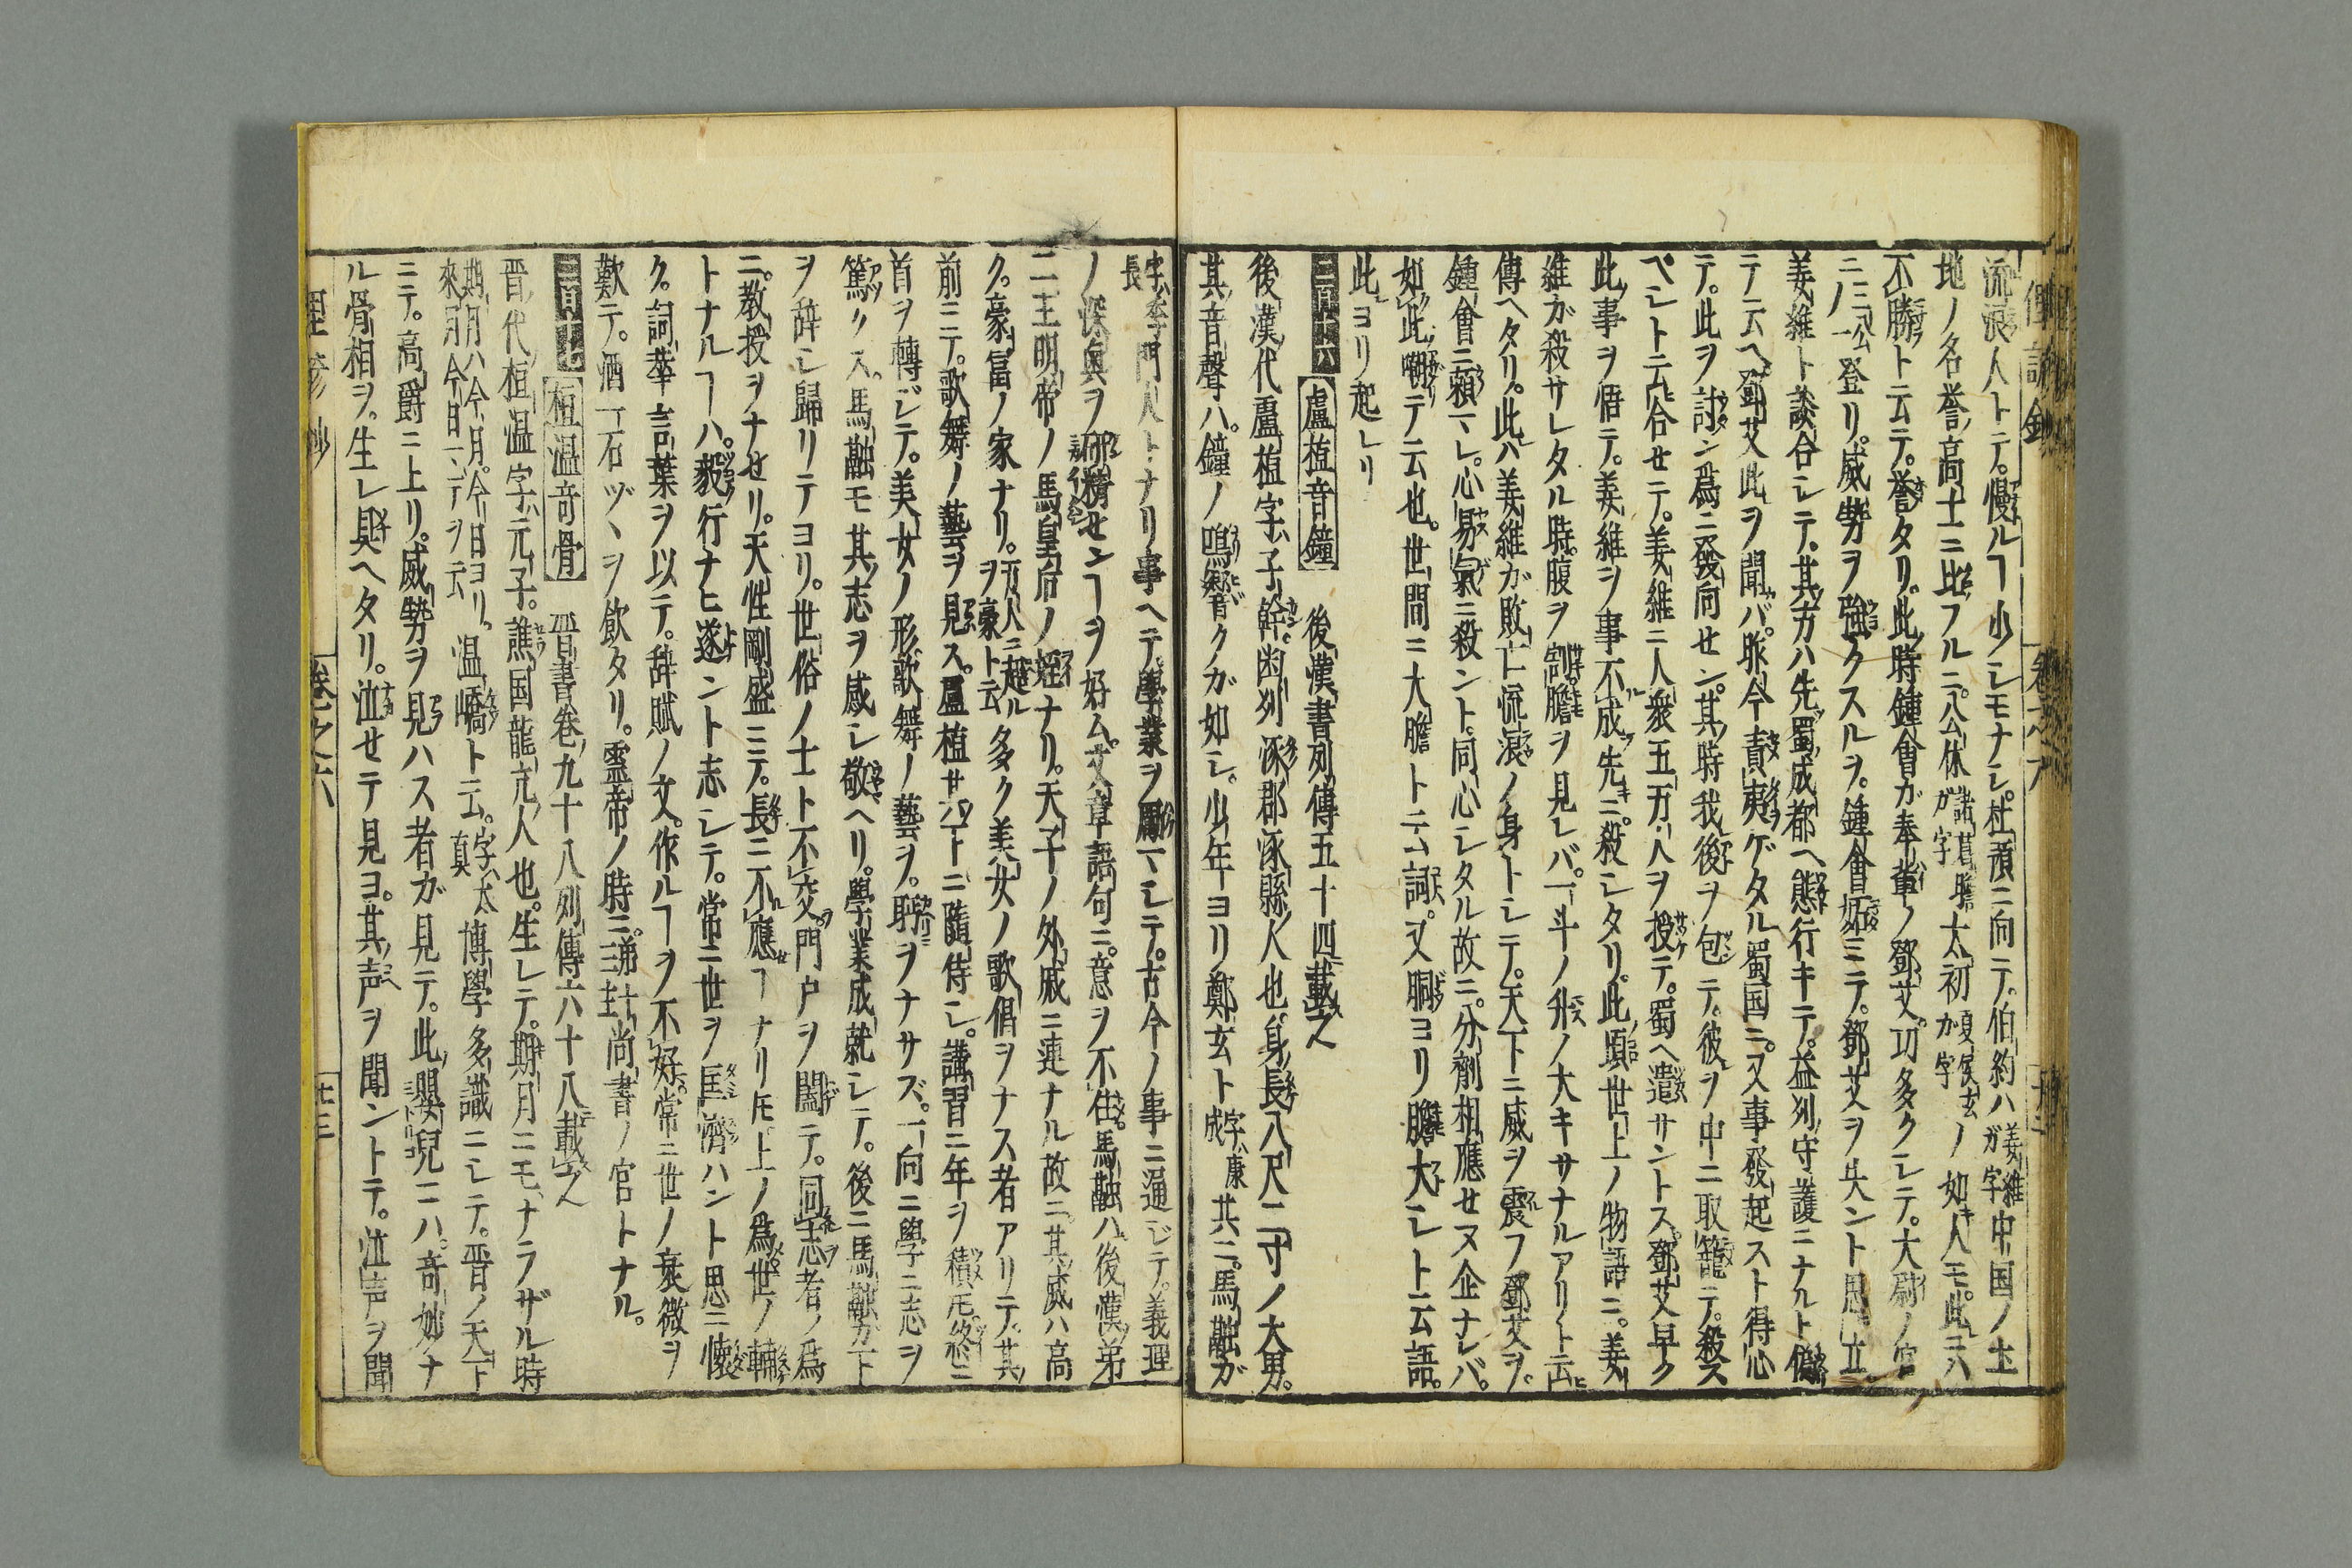 流浪人トテ。慢ルヿ少シモナシ。杜預ニ向テ。伯約ハ姜維ガ字中国ノ士
地ノ名誉高士ニ比フルニ。公休諸葛瞻ガ字太初夏侯玄ガ字ノ如キ人モ。此ニハ
不勝ト云テ。誉タリ。此時鍾會ガ奉輩ノ鄧艾。功多クシテ。大尉ノ官
ニ三公ノ一登リ。威勢ヲ強クスルヲ。鍾會妬ミテ。鄧艾ヲ失ント思立
姜維ト談合シテ。其方ハ先蜀成都ヘ態行キテ。益州守護ニナルト偽
テ云ヘ。鄧艾此ヲ聞バ。昨今責夷ゲタル蜀国ニ。又事發起スト得心
テ。此ヲ討ン爲ニ發向セン。其時我後ヲ包テ。彼ヲ中ニ取籠テ。殺ス
ベシト云合セテ。姜維ニ人衆五万人ヲ授テ。蜀ヘ遣サントス。鄧艾早ク
此事ヲ悟テ。姜維ヲ事不成先ニ。殺シタリ。此頃世上ノ物語ニ。姜
維ガ殺サレタル時。腹ヲ割。膽ヲ見レバ。一斗ノ升ノ大キサナルアリト云
傳ヘタリ。此ハ姜維ガ敗亡流浪ノ身トシテ。天下ニ威ヲ震フ鄧艾ヲ。
鍾會ニ頼マレ。心易氣ニ殺ント。同心シタル故ニ。分劑相應セヌ企ナレバ。
如此嘲テ云也。世間ニ大膽ト云詞。又胴ヨリ膽大シト云語。
此ヨリ起レリ
二百十六 盧植音鐘 後漢書列傳五十四載之
後漢代盧植字ハ子幹。幽州涿郡涿縣人也。身長八尺二寸ノ大男。
其音聲ハ。鐘ノ鳴響クガ如シ。少年ヨリ鄭玄ト字ハ康成共ニ。馬融ガ
字ハ季長門人トナリ事ヘテ。學業ヲ勵マシテ。古今ノ事ニ通ジテ。義理
ノ深奥ヲ研精センヿヲ好ム。文章語句ニ。意ヲ不住。馬融ハ。後漢第
二主明帝ノ馬皇后ノ姪ナリ。天子ノ外戚ニ連ナル故ニ。其威ハ高
ク。豪富ノ家ナリ。万人ニ越ルヲ豪ト云多ク美女ノ歌倡ヲナス者アリテ。其
前ニテ。歌舞ノ藝ヲ見ス。盧植サバカリニ隨侍シ。講習ニ年ヲ積ドモ。終ニ
首ヲ轉ジテ。美女ノ形歌舞ノ藝ヲ。眄ヲナサズ。一向ニ學ニ志ヲ
篤クス。馬融モ其志ヲ感シ敬ヘリ。學業成就シテ。後ニ馬融ガ下
ヲ辞シ歸リテヨリ。世俗ノ士ト不交。門戸ヲ闔テ。同志者ノ爲
ニ。教授ヲナセリ。天性剛盛ニテ。長ニ不應ヿナリドモ。上ノ爲世ノ輔
トナルヿハ。毅行ナヒ遂ント志シテ。常ニ世ヲ匡濟ハント思ニ懷
ク。詞華言葉ヲ以テ。辞賦ノ文。作ルヿヲ不好。常ニ世ノ衰微ヲ
歎テ。酒一石ヅヽヲ飲タリ。靈帝ノ時ニ。尚書ノ官トナル。
二百十七 桓温竒骨 晋書巻九十八列傳六十八載之
晋代桓温字ハ元子。譙国龍亢人也。生レテ。期月ニモナラザル時
期月ハ今月。今日ヨリ。來月今日マデヲ云温嶠ト云。字ハ太真博學多識ニシテ。晋ノ天下
ニテ。高爵ニ上リ。威勢ヲ見ハス者ガ見テ。此嬰兒ニハ。竒妙ナ
ル骨相ヲ。生レ具ヘタリ。泣セテ見ヨ。其声ヲ聞ントテ。泣声ヲ聞
巻之六
廿三